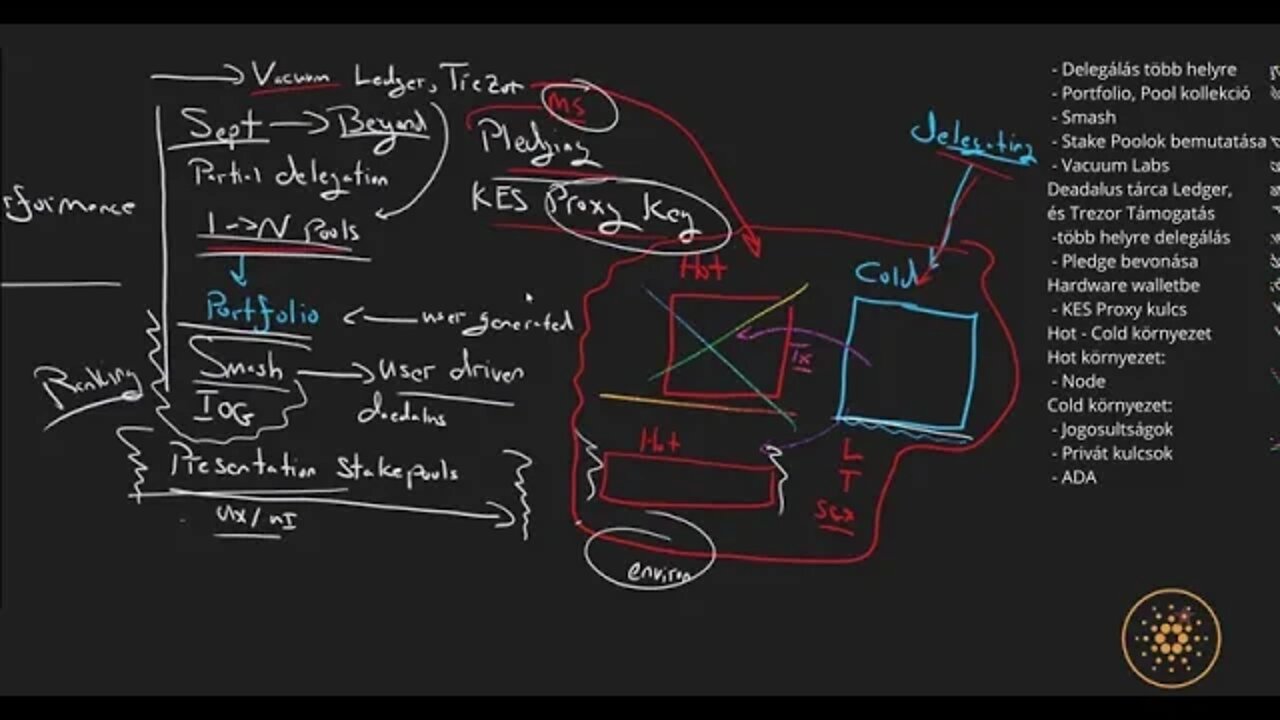 Vacuum Ledger, Trezor
MS
Sept → Beyond
Partial delegation
1->N Pools
Portfolio ← user generated
Smash → user driven
IOG
daedalus
Ranking
Presentation stakepools
UX/UI
Pledging
KES Proxy Key
Hot
Cold
Delegating
Tx
Hot
L
T
environ
- Delegálás több helyre
- Portfolio, Pool kollekció
- Smash
- Stake Poolok bemutatása
- Vacuum Labs
Deadalus tárca Ledger,
és Trezor Támogatás
-több helyre delegálás
- Pledge bevonása
Hardware walletbe
- KES Proxy kulcs
Hot - Cold környezet
Hot környezet:
- Node
Cold környezet:
- Jogosultságok
- Privát kulcsok
- ADA